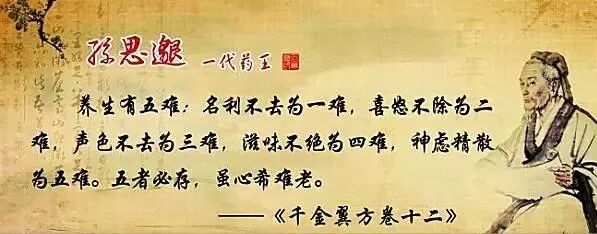 孫思邈
一代药王
养生有五难：名利不去为一难，喜怒不除为二
难，声色不去为三难，滋味不绝为四难，神虑精散
为五难。五者必存，虽心希难老。
——《千金翼方卷十二》